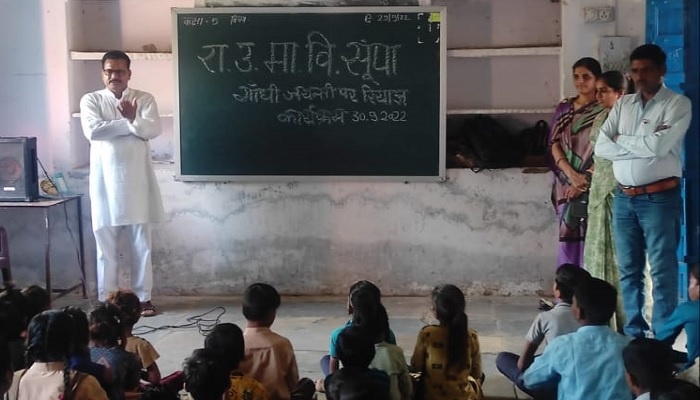 कक्षा - 5 विषय दि 29/9/22
रा. उ. मा. वि. सूंपा
गाँधी जयन्ती पर रियाज
कार्यक्रम 30.9.2022